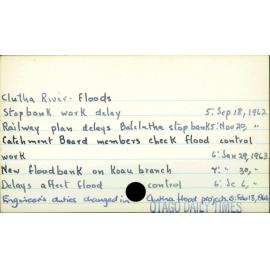 Clutha River - Floods
Stopbank work delay 5: Sep 18, 1962
Railway plan delays Balclutha stopbank 5: Nov 20, "
Catchment Board members check flood control
work 6: Jan 29, 1963
New floodbank on Koau branch 4: " 30, "
Delays affect flood control 6: Dec 6, "
Engineer's duties changed in Clutha flood project 5: Feb 13, 1964
OTAGO DAILY TIMES